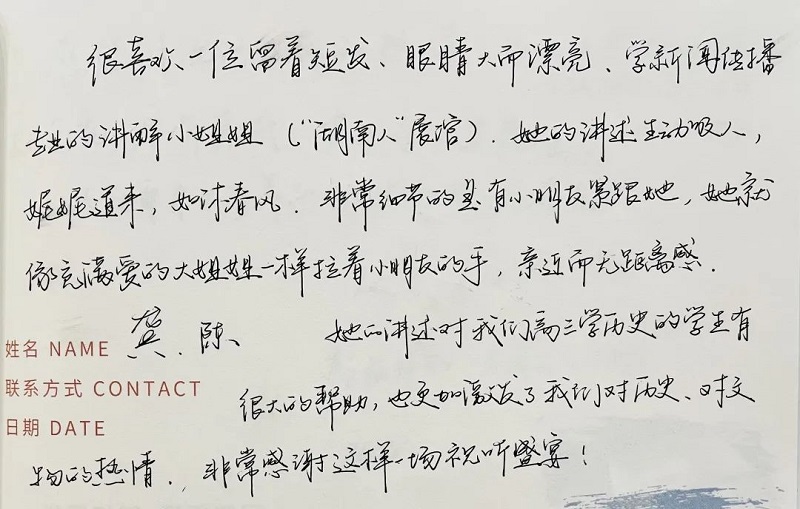 很喜欢一位留着短发、眼睛大而漂亮、学新闻传播
专业的讲解小姐姐（“湖南人”展馆）. 她的讲述生动吸人，
娓娓道来，如沐春风. 非常细节的是有小朋友紧跟她，她就
像充满爱的大姐姐一样拉着小朋友的手，亲近而无距离感.
姓名 NAME 龚、陈 她的讲述对我们高三学历史的学生有
联系方式 CONTACT 很大的帮助，也更加激发了我们对历史、对文
日期 DATE
物的热情.，非常感谢这样一场视听盛宴！